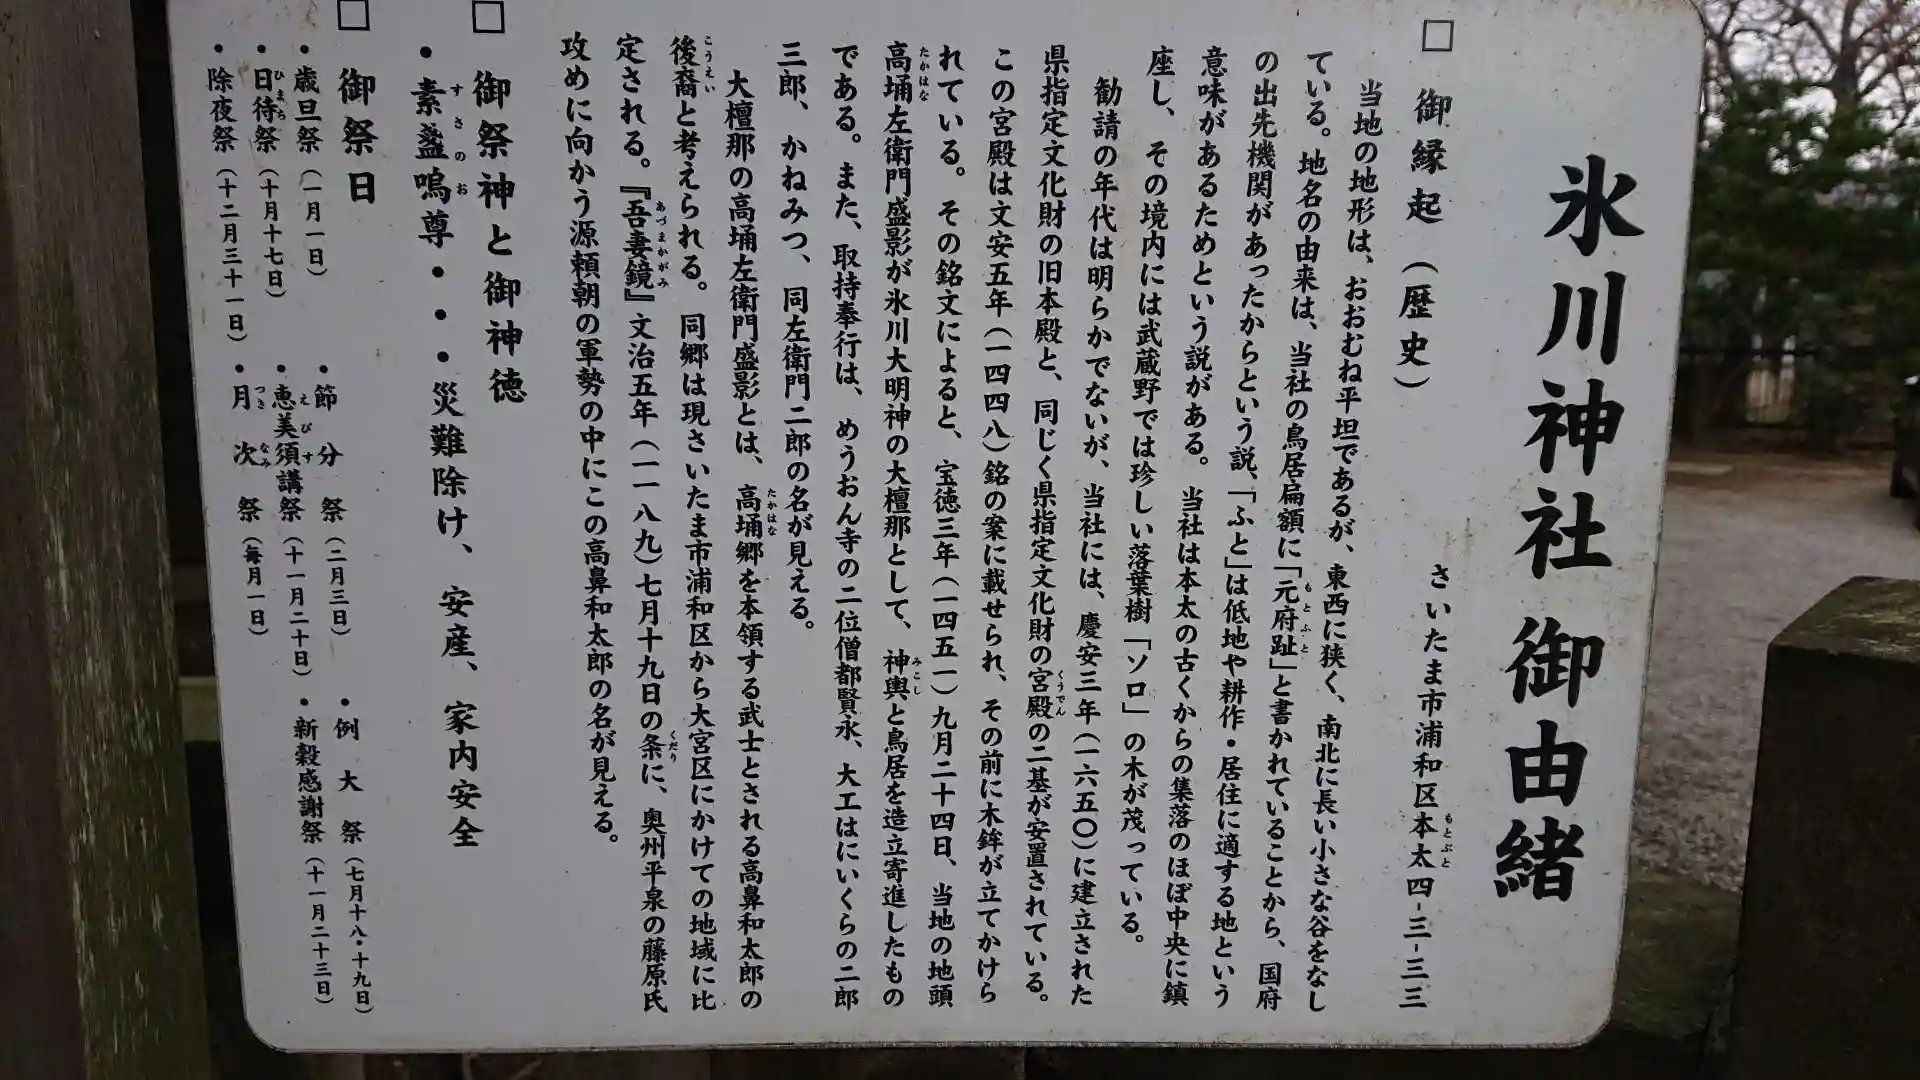 氷川神社 御由緒
さいたま市浦和区本太四-三-三三
もとぶと
□ 御縁起（歴史）
当地の地形は、おおむね平坦であるが、東西に狭く、南北に長い小さな谷をなし
ている。地名の由来は、当社の鳥居扁額に「元府趾」と書かれていることから、国府
もとふと
の出先機関があったからという説、「ふと」は低地や耕作・居住に適する地という
意味があるためという説がある。当社は本太の古くからの集落のほぼ中央に鎮
座し、その境内には武蔵野では珍しい落葉樹「ソロ」の木が茂っている。
勧請の年代は明らかでないが、当社には、慶安三年（一六五〇）に建立された
県指定文化財の旧本殿と、同じく県指定文化財の宮殿の二基が安置されている。
くうでん
この宮殿は文安五年（一四四八）銘の案に載せられ、その前に木鉾が立てかけら
れている。その銘文によると、宝徳三年（一四五一）九月二十四日、当地の地頭
高埇左衛門盛影が氷川大明神の大檀那として、神輿と鳥居を造立寄進したもの
たかはな
みこし
である。また、取持奉行は、めうおん寺の二位僧都賢永、大工はにいくらの二郎
三郎、かねみつ、同左衛門二郎の名が見える。
大檀那の高埇左衛門盛影とは、高埇郷を本領する武士とされる高鼻和太郎の
たかはな
後裔と考えられる。同郷は現さいたま市浦和区から大宮区にかけての地域に比
こうえい
定される。『吾妻鏡』文治五年（一一八九）七月十九日の条に、奥州平泉の藤原氏
あづまかがみ
くだり
攻めに向かう源頼朝の軍勢の中にこの高鼻和太郎の名が見える。
□ 御祭神と御神徳
・素盞嗚尊・・・災難除け、安産、家内安全
すさのお
□ 御祭日
・歳旦祭（一月一日）
・節分祭（二月三日）
・例大祭（七月十八・十九日）
・日待祭（十月十七日）
ひまち
・恵美須講祭（十一月二十日）
えびす
・新穀感謝祭（十一月二十三日）
・除夜祭（十二月三十一日）
・月次祭（毎月一日）
つきなみ